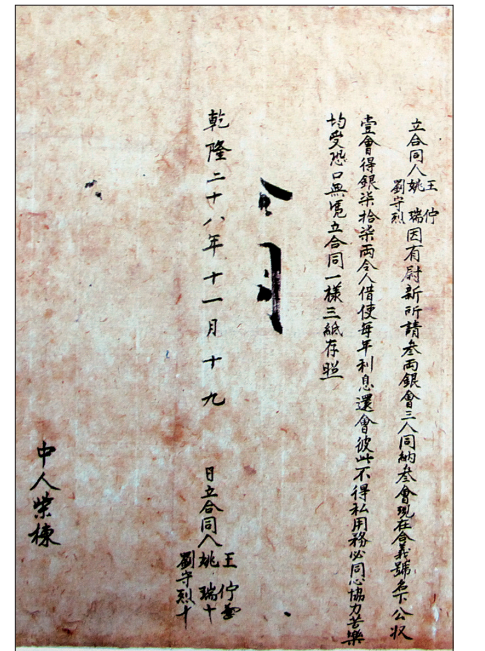 立合同人王佇姚瑞劉守烈因有尉新所請叁兩銀會三人同納叁會現在合義號名下公收
壹會得銀柒拾柒兩令人借使每年利息還會彼此不得私用務必同心協力苦樂
均受恐口無凴立合同一樣三紙存照
乾隆二十八年十一月十九日立合同人王佇
姚瑞十
劉守烈十
中人榮棟